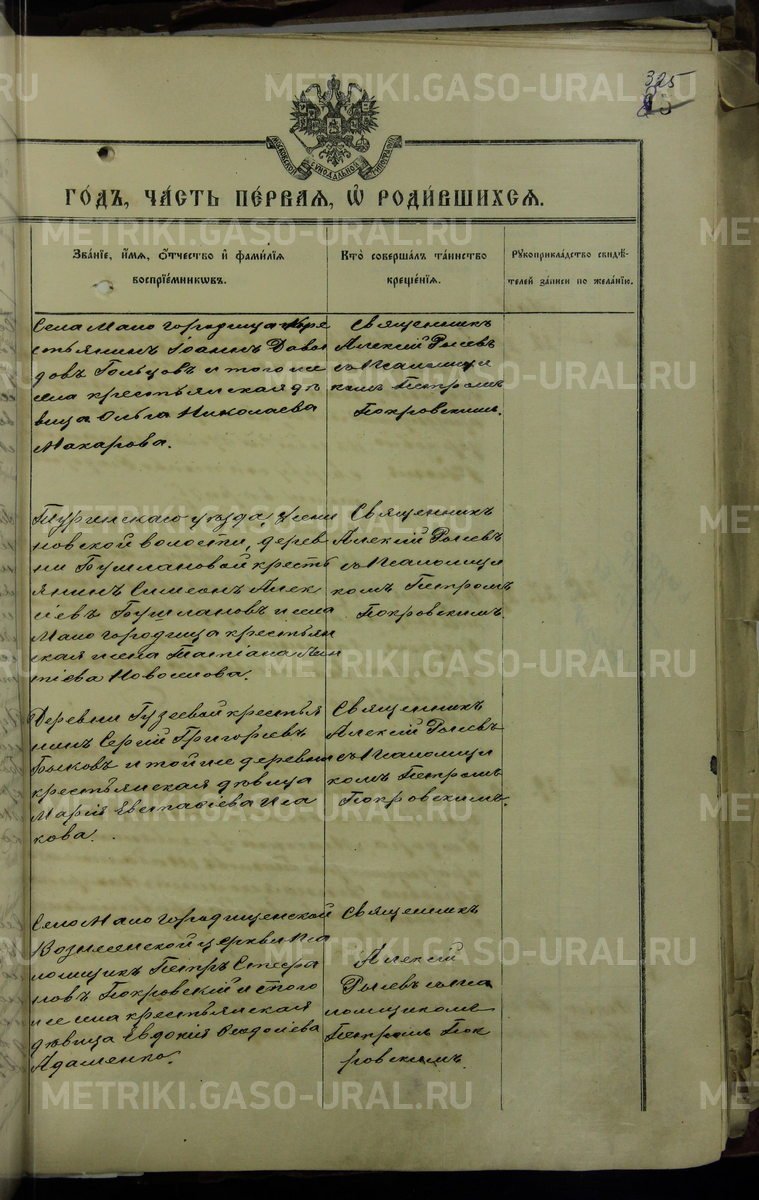 325
METRIKI.GASO-URAL.RU
МОСКОВСКОЙ СѴНОДАЛЬНОЙ ТИПОГРАФІИ
ГО́ДЪ, ЧА́СТЬ ПЕ́РВАЯ, Ѡ҆ РОДИ́ВШИХСЯ.
Зва́нїе, и҆́мѧ, ѻ҆́тчество и҆ фами́лїѧ
воспрїе́мникѡвъ.
Кто̀ соверша́лъ та́инство
креще́нїѧ.
Рꙋкоприкла́дство свидѣ́-
телей за́писи по жела́нїю.
Села Мало городища кре
стьянинъ Іоаннъ Давы
довъ Гольцовъ и того же
села крестьянская дѣ
вица Ольга Николаева
Макарова.
Священникъ
Алексій Рычевъ
съ Псаломщи
комъ Петромъ
Покровскимъ.
Туринскаго уѣзда,
новской волости, дерев
ни Бушлановой кресть
янинъ Симеонъ Алек
сіевъ Бушлановъ и села
Мало городища крестьян
ская жена Татіана
тіева Новоселова.
Священникъ
Алексій Рычевъ
съ Псаломщи
комъ Петромъ
Покровскимъ.
Деревни Гузеевой крестья
нинъ Сергій Григорьевъ
Быковъ и той же деревни
крестьянская дѣвица
Марія Евстафіева Иса
кова.
Священникъ
Алексій Рычевъ
съ Псаломщи
комъ Петромъ
Покровскимъ.
Село Мало городищенской
Вознесенской церкви Пса
ломщикъ Петръ Стефа
новъ Покровскій и того
же села крестьянская
дѣвица Евдокія Ѳеодосіева
Адаменко.
Священникъ
Алексій
Рычевъ съ Пса
ломщикомъ
Петромъ Пок
ровскимъ.
METRIKI.GASO-URAL.RU